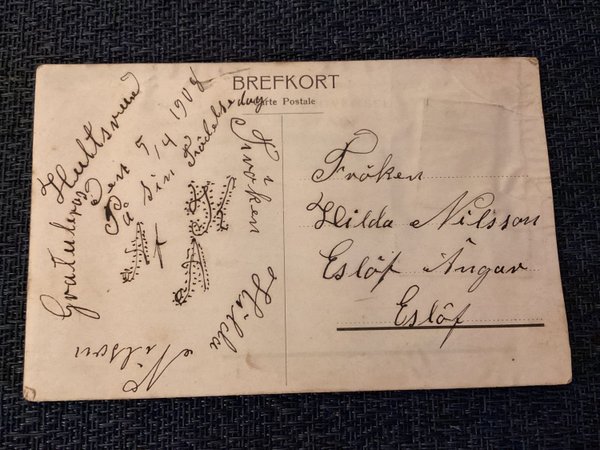 BREFKORT
Carte Postale
Hultsvred
den 5/4 1908
Gratulerar
På din Födelsedag
Fröken
Hilda
Nilsson
Fröken
Hilda Nilsson
Eslöf Ängar
Eslöf